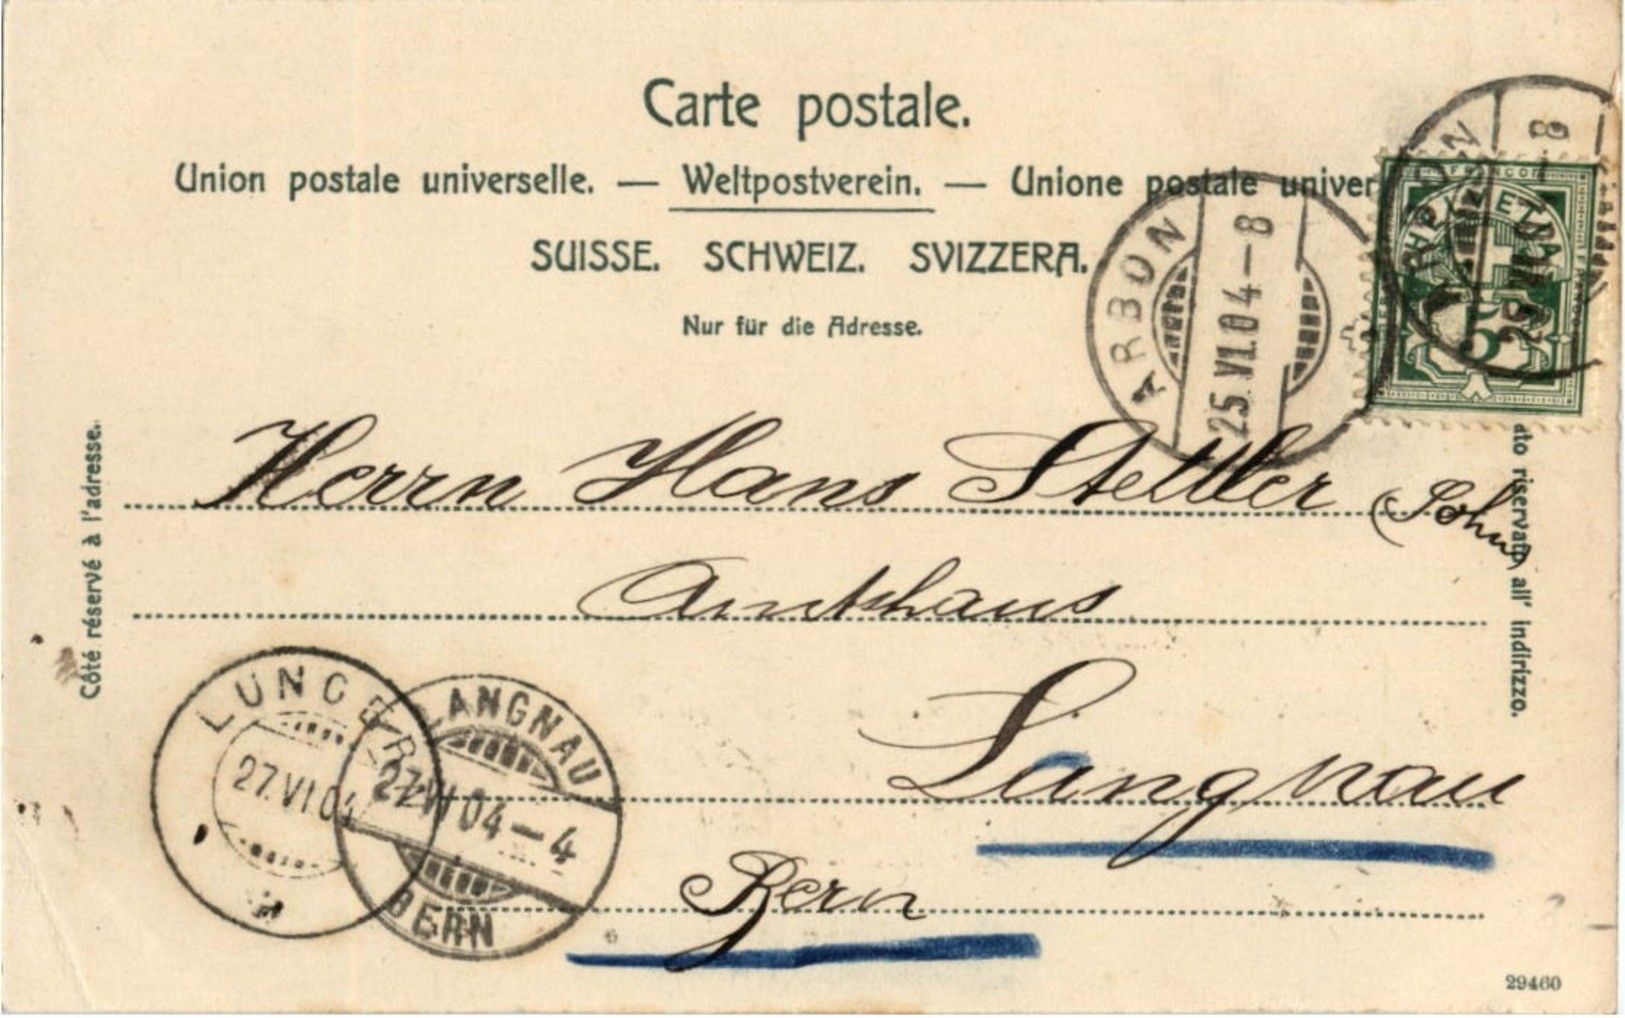 Carte postale.
Union postale universelle. — Weltpostverein. — Unione postale univer
SUISSE. SCHWEIZ. SVIZZERA.
Nur für die Adresse.
ARBON
25.VI.04–8
ARBON
25.VI.04–8
FRANCO
HELVETIA
5
Côté réservé à l'adresse.
ato riservato all' indirizzo.
Herrn Hans Stettler (Sohn)
Amthaus
Langnau
Bern
LUNGERN
27.VI.04
LANGNAU
27.VI.04–4
BERN
29460